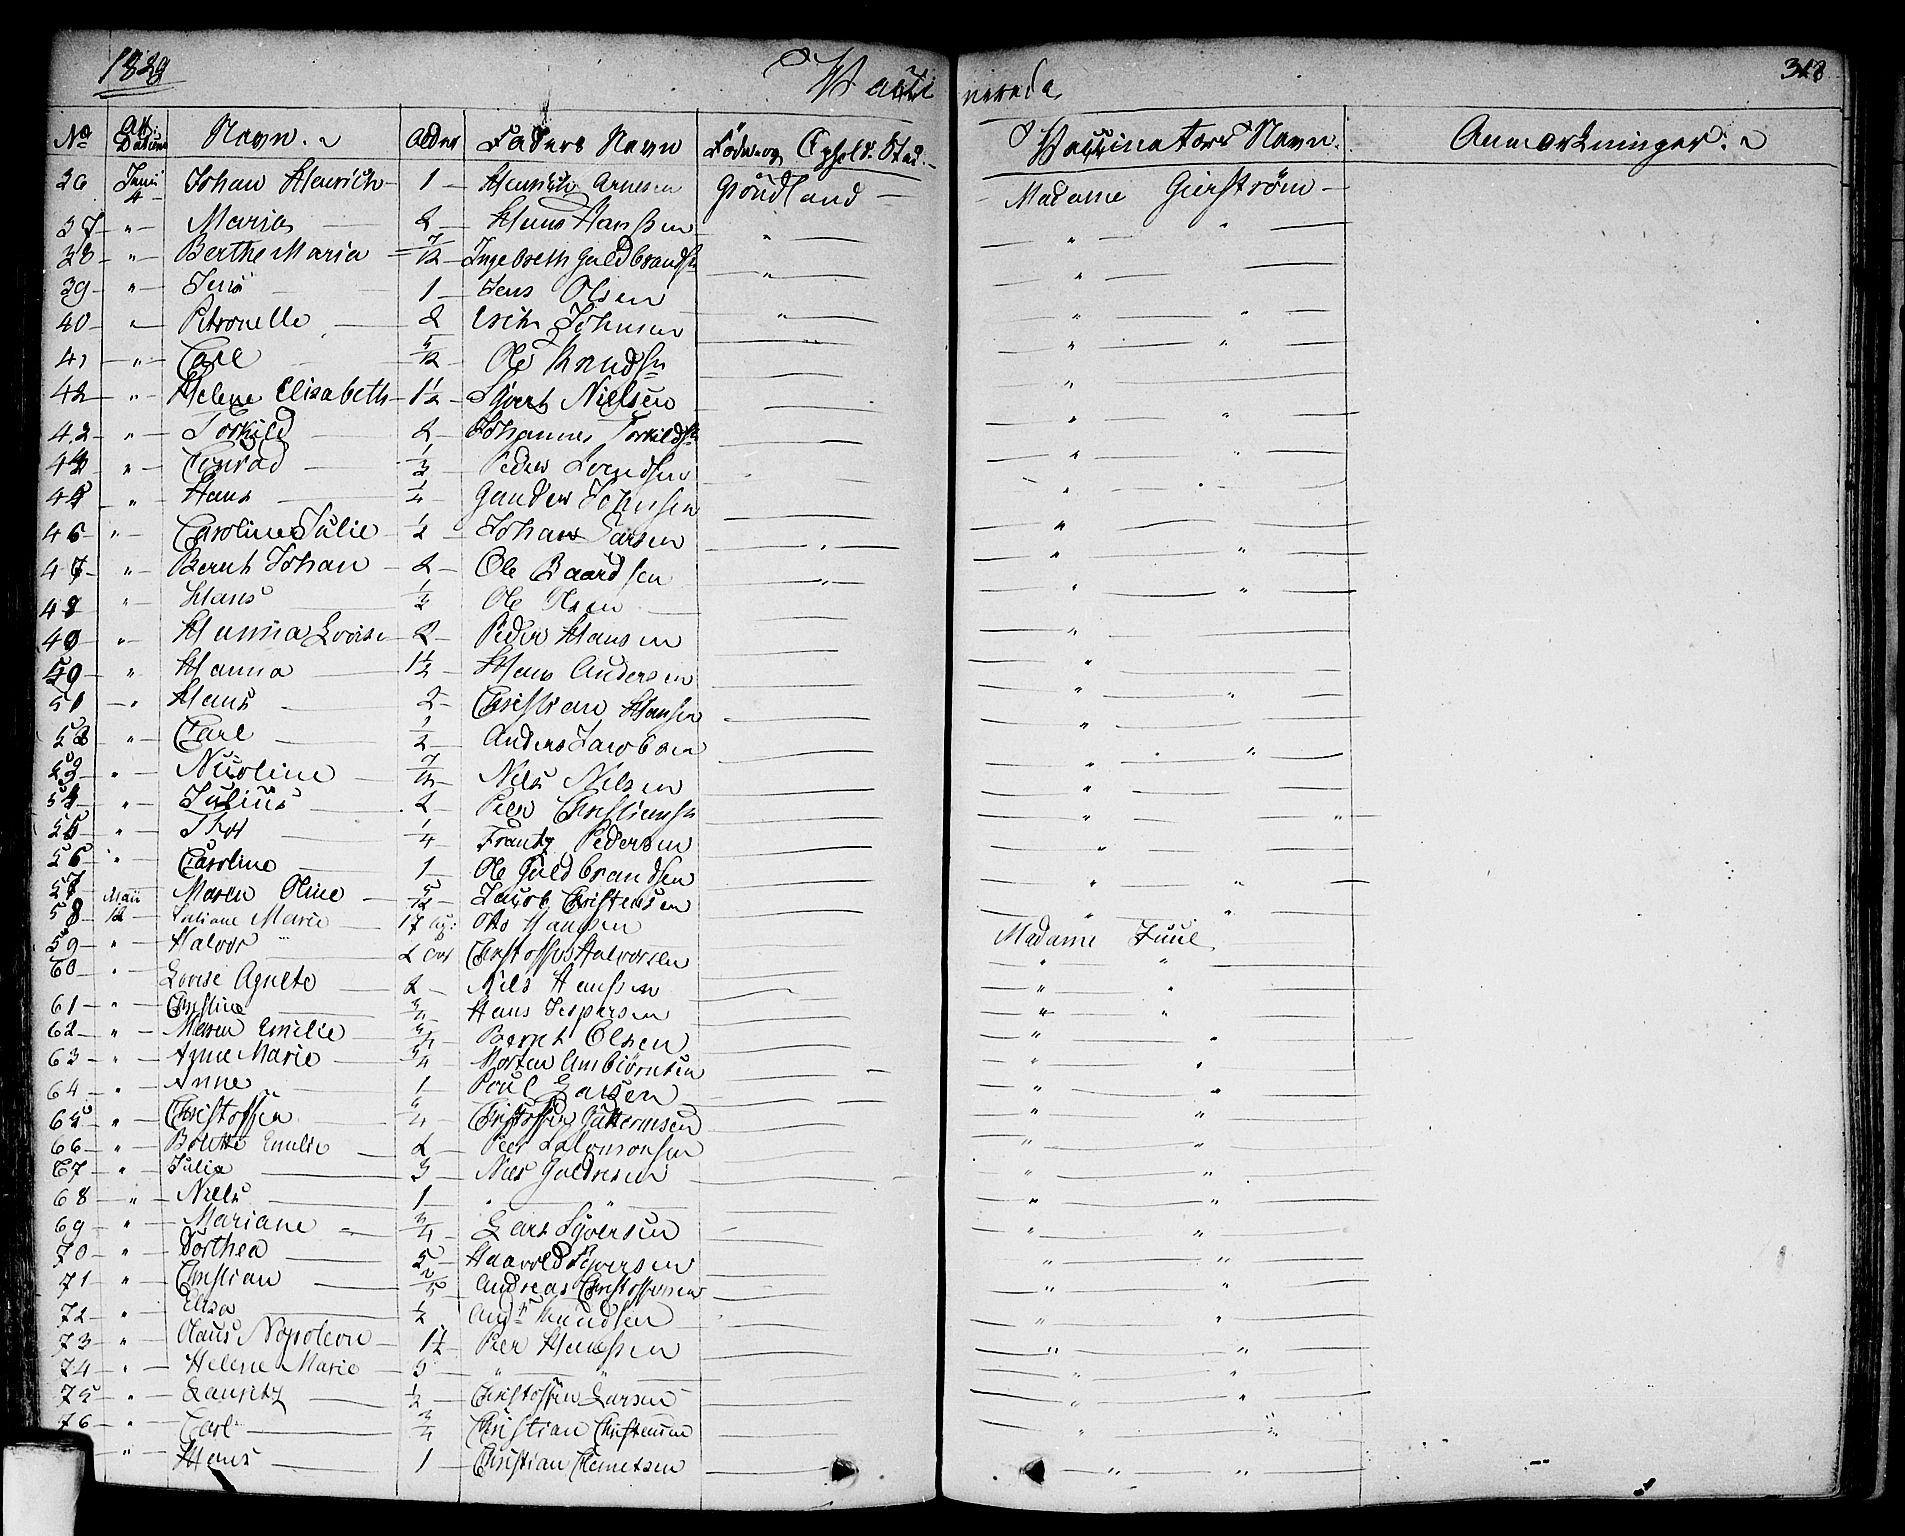 1829 Vacci nerede 348
No Datum Navn. Alder Faders Navn Føde og Ophold. Sted. Vaccinateurs Navn. Anmærkninger.
36 Junii 4 Johan Henrich 1 Henrich Arnesen Grøndland Madame Gierstrøm
37 " Maria 2 Hans Hanssen " " "
38 " Berthe Maria 7/12 Ingebreth Guldbrands. " "
39 " Jens 1 Jens Olsen " " "
40 " Petronelle 2 Erich Johnsen " " "
41 " Carl 5/12 Ole Knuds. "
42 " Helene Elisabeth 1½ Syvert Nielsen " "
43 " Torkild 2 Johannes Torkilds. " "
44 " Conrad 1/2 Peder Svendsen " "
45 " Hans 1/4 Gunder Johnsen "
46 " Caroline Julie 1/2 Johan Larsen " " "
47 " Bernt Johan 2 Ole Baardsen " " "
48 " Hans 1/2 Ole Olsen "
49 " Hanna Lovise 2 Peder Hansen "
50 " Hanna 1½ Hans Andersen " "
51 " Hans 2 Christian Hansen "
52 " Carl 1/2 Anders Jacobsen " "
53 " Nicoline Nils Nilsen "
54 " Julius 2 Peer Christians. " "
55 " Thor 1/4 Frantz Pedersen "
56 " Caroline 1 Ole Guldbrandsen " "
57 " Maren Oline 5/12 Jacob Christensen " "
58 Maii 12 Juliane Marie 17 Otto Hansen Madame Juul
59 " Halvor 2 Aar Christoffer Halvorsen " "
60 " Lovise Agnete 2 Nils Hanssen " "
61 " Christine 3/4 Hans Jespersen " "
62 " Maren Emilie 3/4 Bernt Olsen " "
63 " Agne Marie 3/4 Morten Ambiørnsen "
64 " Anne 1 Poul Larsen " "
65 " Christoffer 3/4 Christoffer Guttormsen " "
66 " Bolette Emilie 2 Peer Salomonsen " "
67 " Julia 3 Niels " "
68 " Niels 1 " " " "
69 " Mariane 3/4 Lars Syversen " "
70 " Dorthea 5 Haavold Syversen " "
71 " Christian 2/5 Andreas Christoffersen " "
72 " Elisa 1/2 Knudsen " "
73 " Claus Napoleon 1½ Peer Hanssen " "
74 " Helene Marie 5 " " " "
75 " Lauritz 1/2 Christoffer Larsen "
76 " Carl 3/4 Christian Christensen " "
" Hans 1 Christian Clemetsen " "